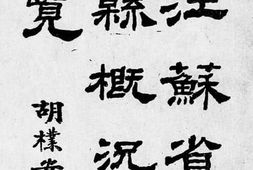 江蘇省
縣概況
覽
胡樸安